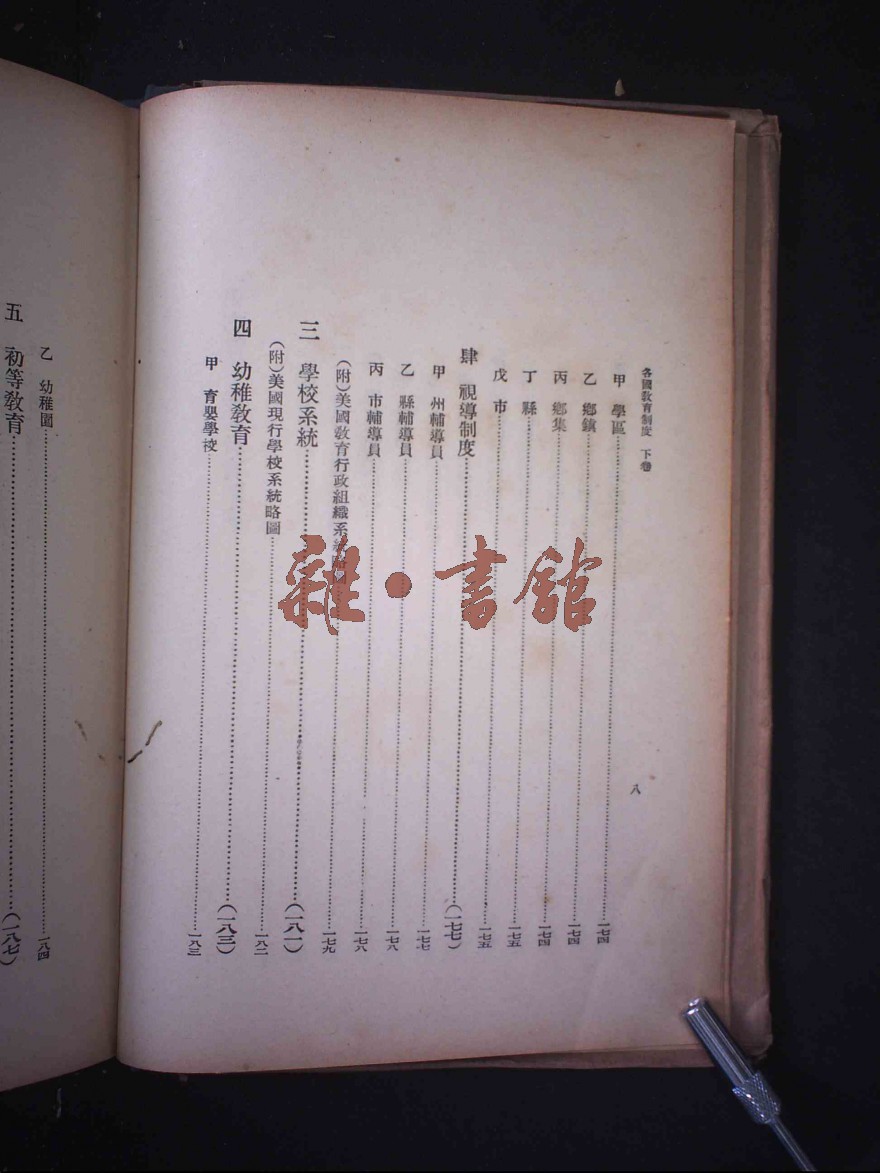 各國教育制度 下卷
八
甲 學區……一七四
乙 鄉鎮……一七四
丙 鄉集……一七四
丁 縣……一七五
戊 市……一七五
肆 視導制度……(一七七)
甲 州輔導員……一七七
乙 縣輔導員……一七八
丙 市輔導員……一七八
(附)美國教育行政組織系統略圖……一七九
三 學校系統……(一八一)
(附)美國現行學校系統略圖……一八二
四 幼稚教育……(一八三)
甲 育嬰學校……一八三
乙 幼稚園……一八四
五 初等教育……(一八七)
雜·書館